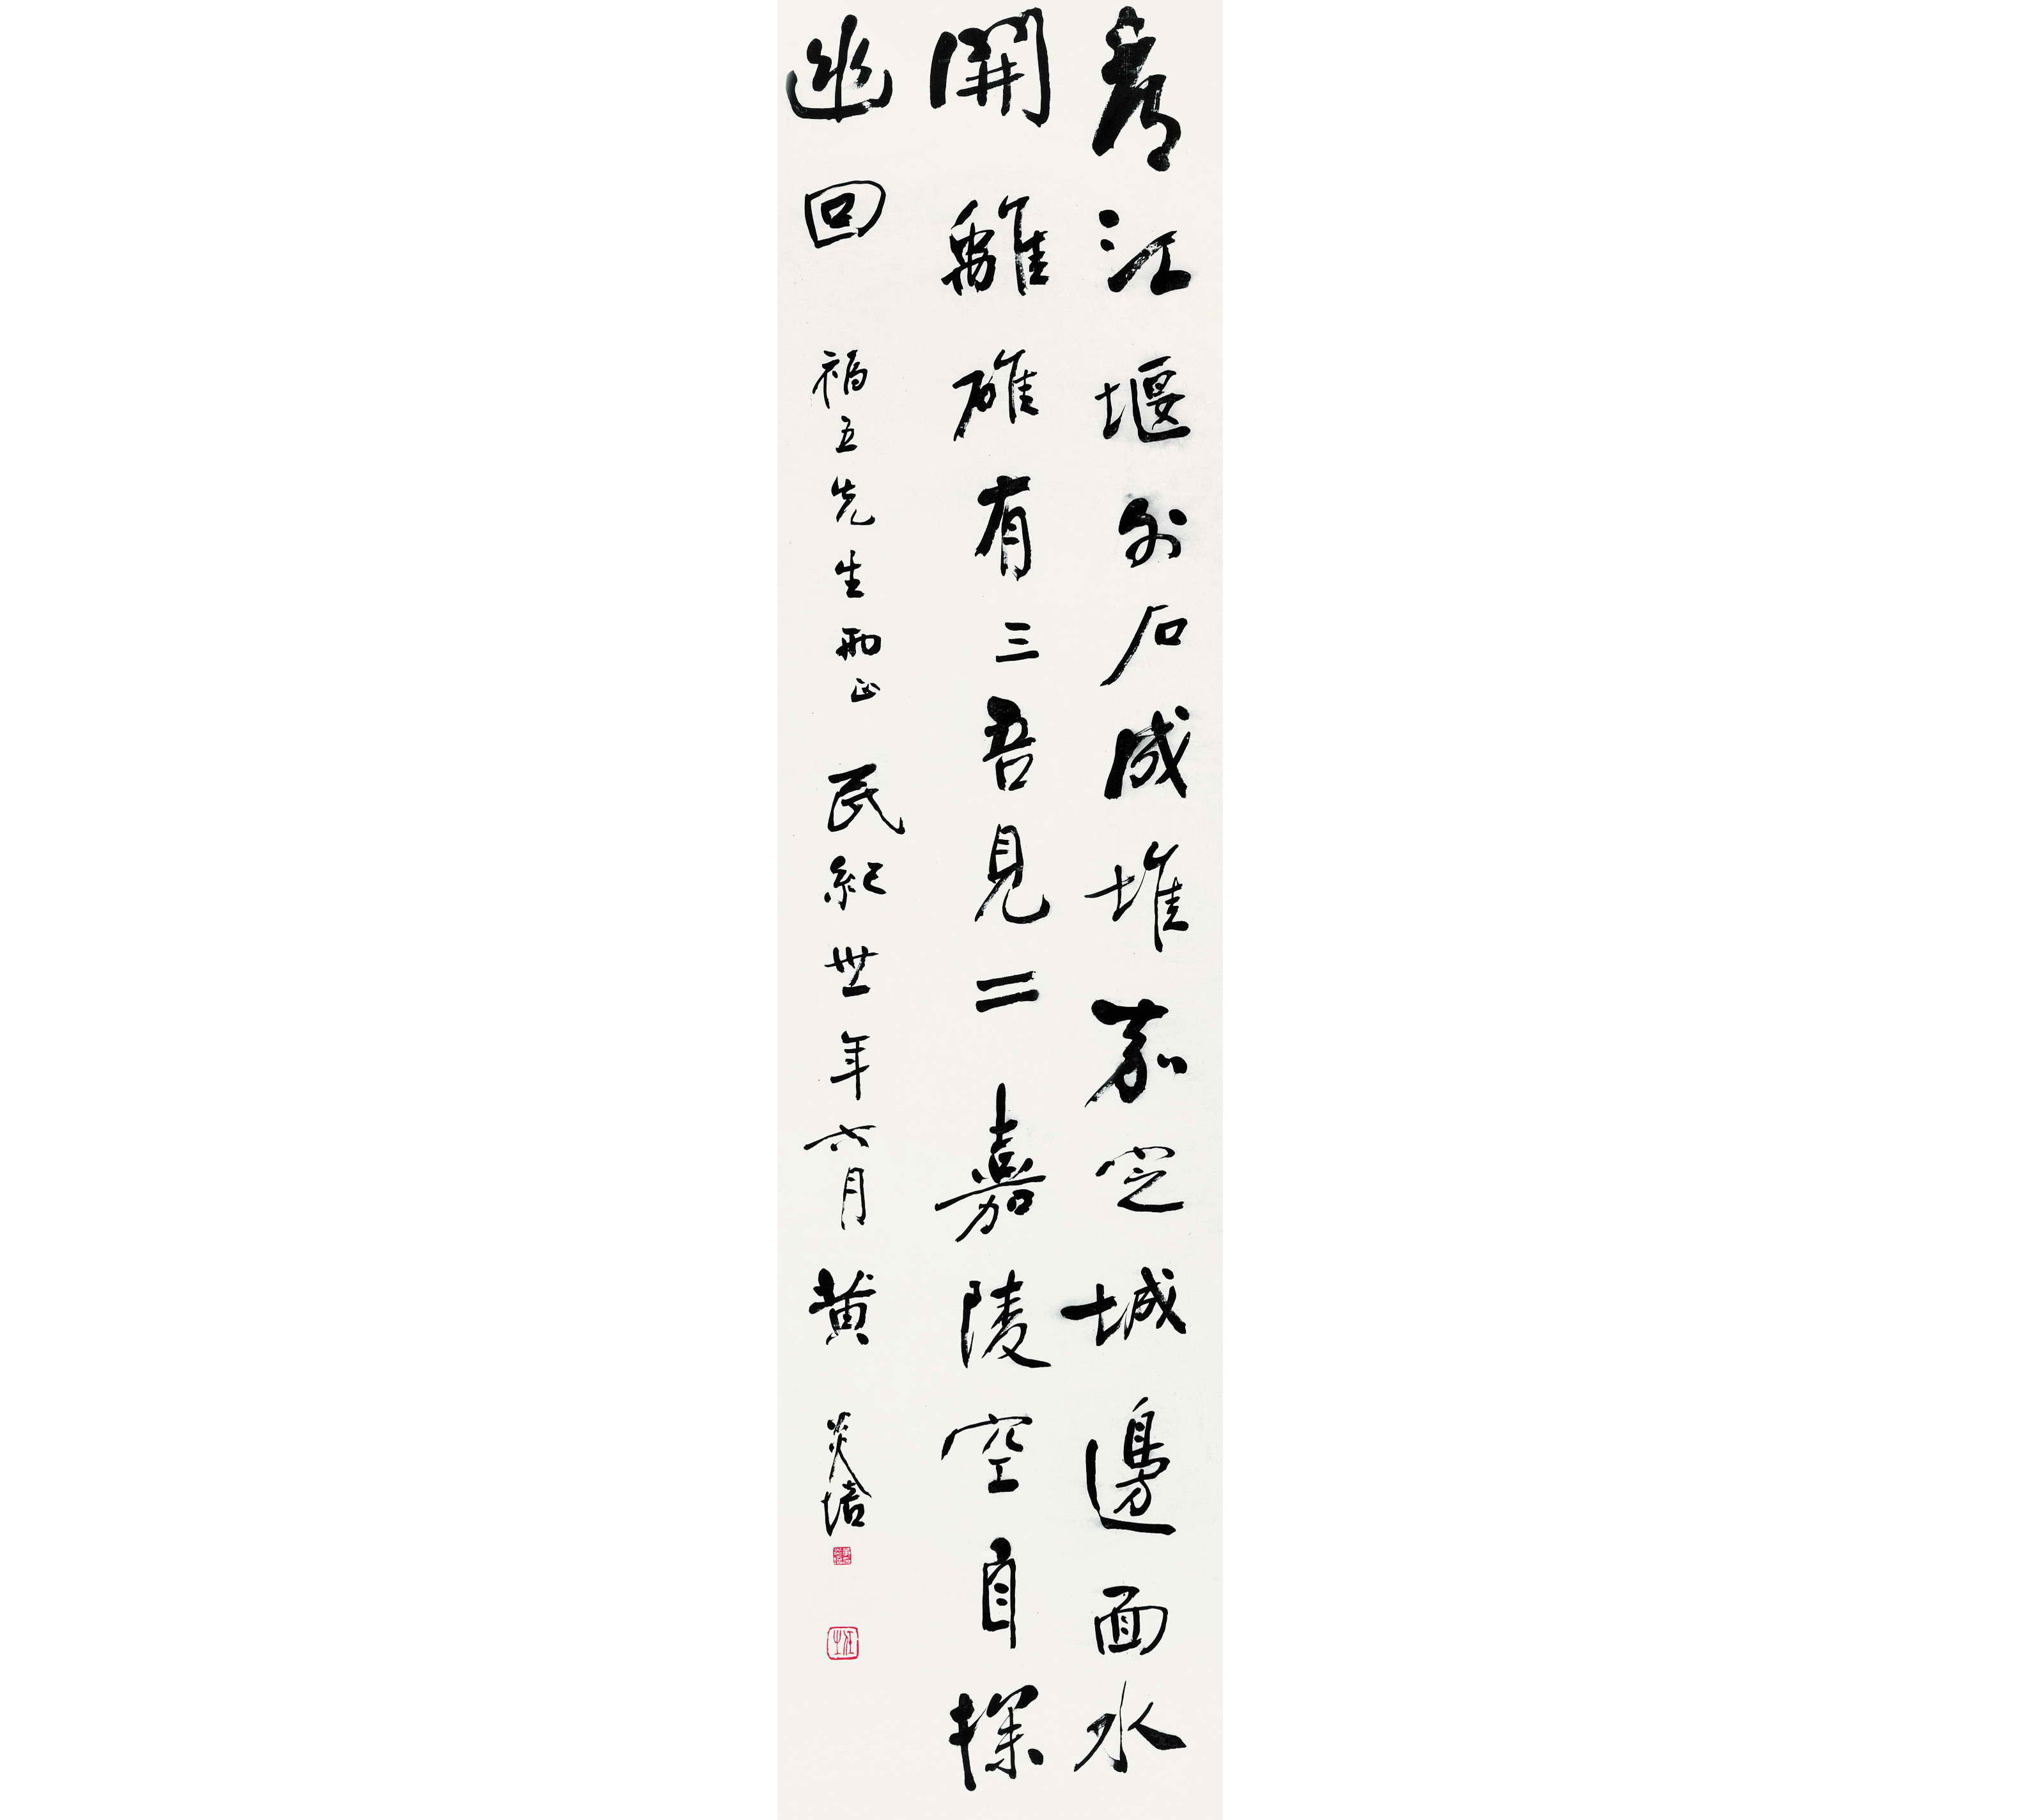 都江堰外石成堆嘉定城邊面水
開離碓有三吾見二嘉陵空自探
幽回
福五先生正民紀卅一年六月黄炎培
任之